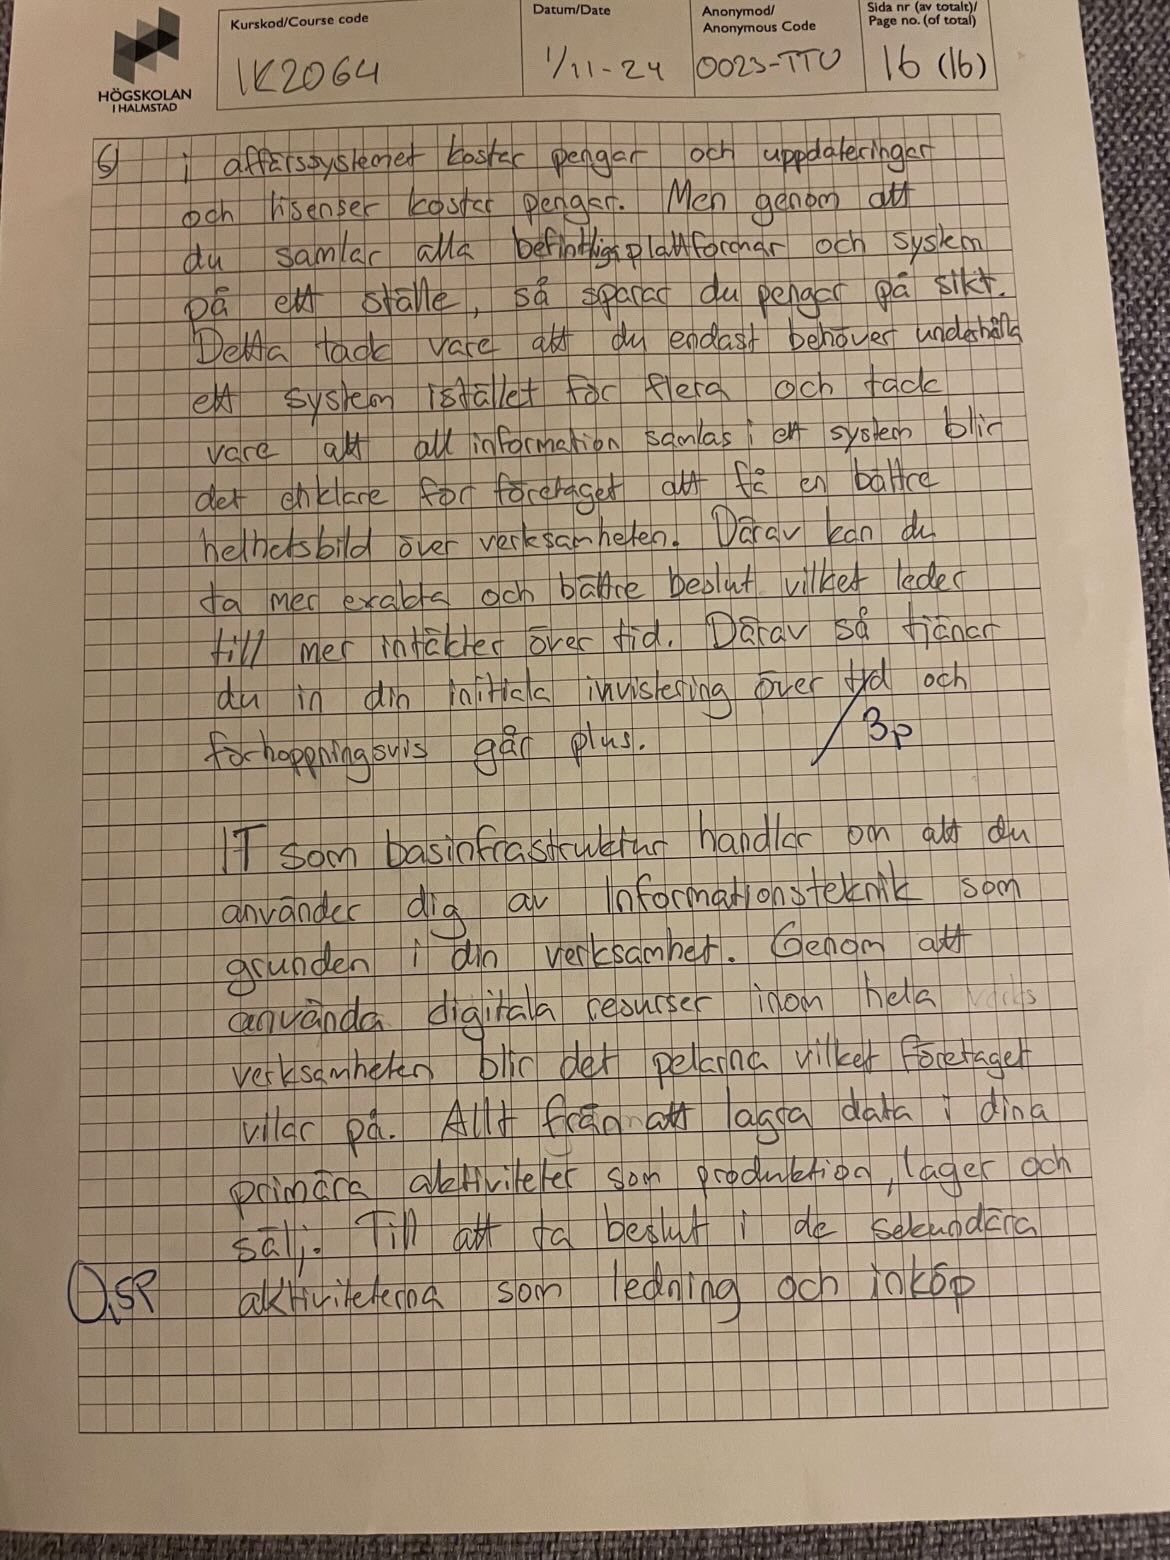 HÖGSKOLAN
I HALMSTAD
Kurskod/Course code
IK2064
Datum/Date
1/11-24
Anonymod/
Anonymous Code
0023-TTU
Sida nr (av totalt)/
Page no. (of total)
16 (16)
6) i affärssystemet kostar pengar och uppdateringar
och lisenser kostar pengar. Men genom att
du samlar alla befintliga plattformar och system
på ett ställe, så sparar du pengar på sikt.
Detta tack vare att du endast behöver underhålla
ett system istället för flera och tack
vare att all information samlas i ett system blir
det enklare för företaget att få en bättre
helhetsbild över verksamheten. Därav kan du
ta mer exakta och bättre beslut vilket leder
till mer intäkter över tid. Därav så tjänar
du in din initiala invistering över tid och
förhoppningsvis går plus.
3p
IT som basinfrastruktur handlar om att du
använder dig av Informationsteknik som
grunden i din verksamhet. Genom att
använda digitala resurser inom hela
verksamheten blir det pelarna vilket företaget
vilar på. Allt från att lagra data i dina
primära aktiviteter som produktion, lager och
sälj. Till att ta beslut i de sekundära
0,5P aktiviteterna som ledning och inköp